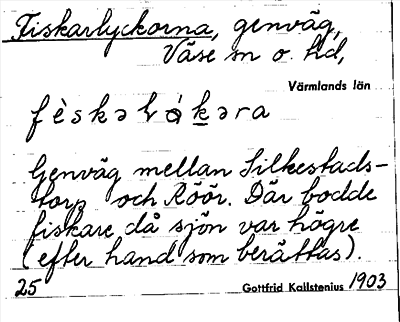 Fiskarlyckorna, genväg,
Väse sn o. hd,
Värmlands län
Genväg mellan Silkestads-
torp och Röör. Där bodde
fiskare då sjön var högre
(efter hand som berättas).
25 Gottfrid Kallstenius 1903